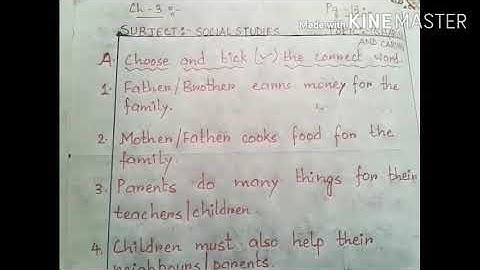 Ch - 3 :-
Pg - 13 :-
Made with KINEMASTER
SUBJECT :- SOCIAL STUDIES
TOPIC :-
AND CARING
A. Choose and tick (✓) the correct word.
1. Father/Brother earns money for the
family.
2. Mother/Father cooks food for the
family.
3. Parents do many things for their
teachers/children.
4. Children must also help their
neighbours/parents.